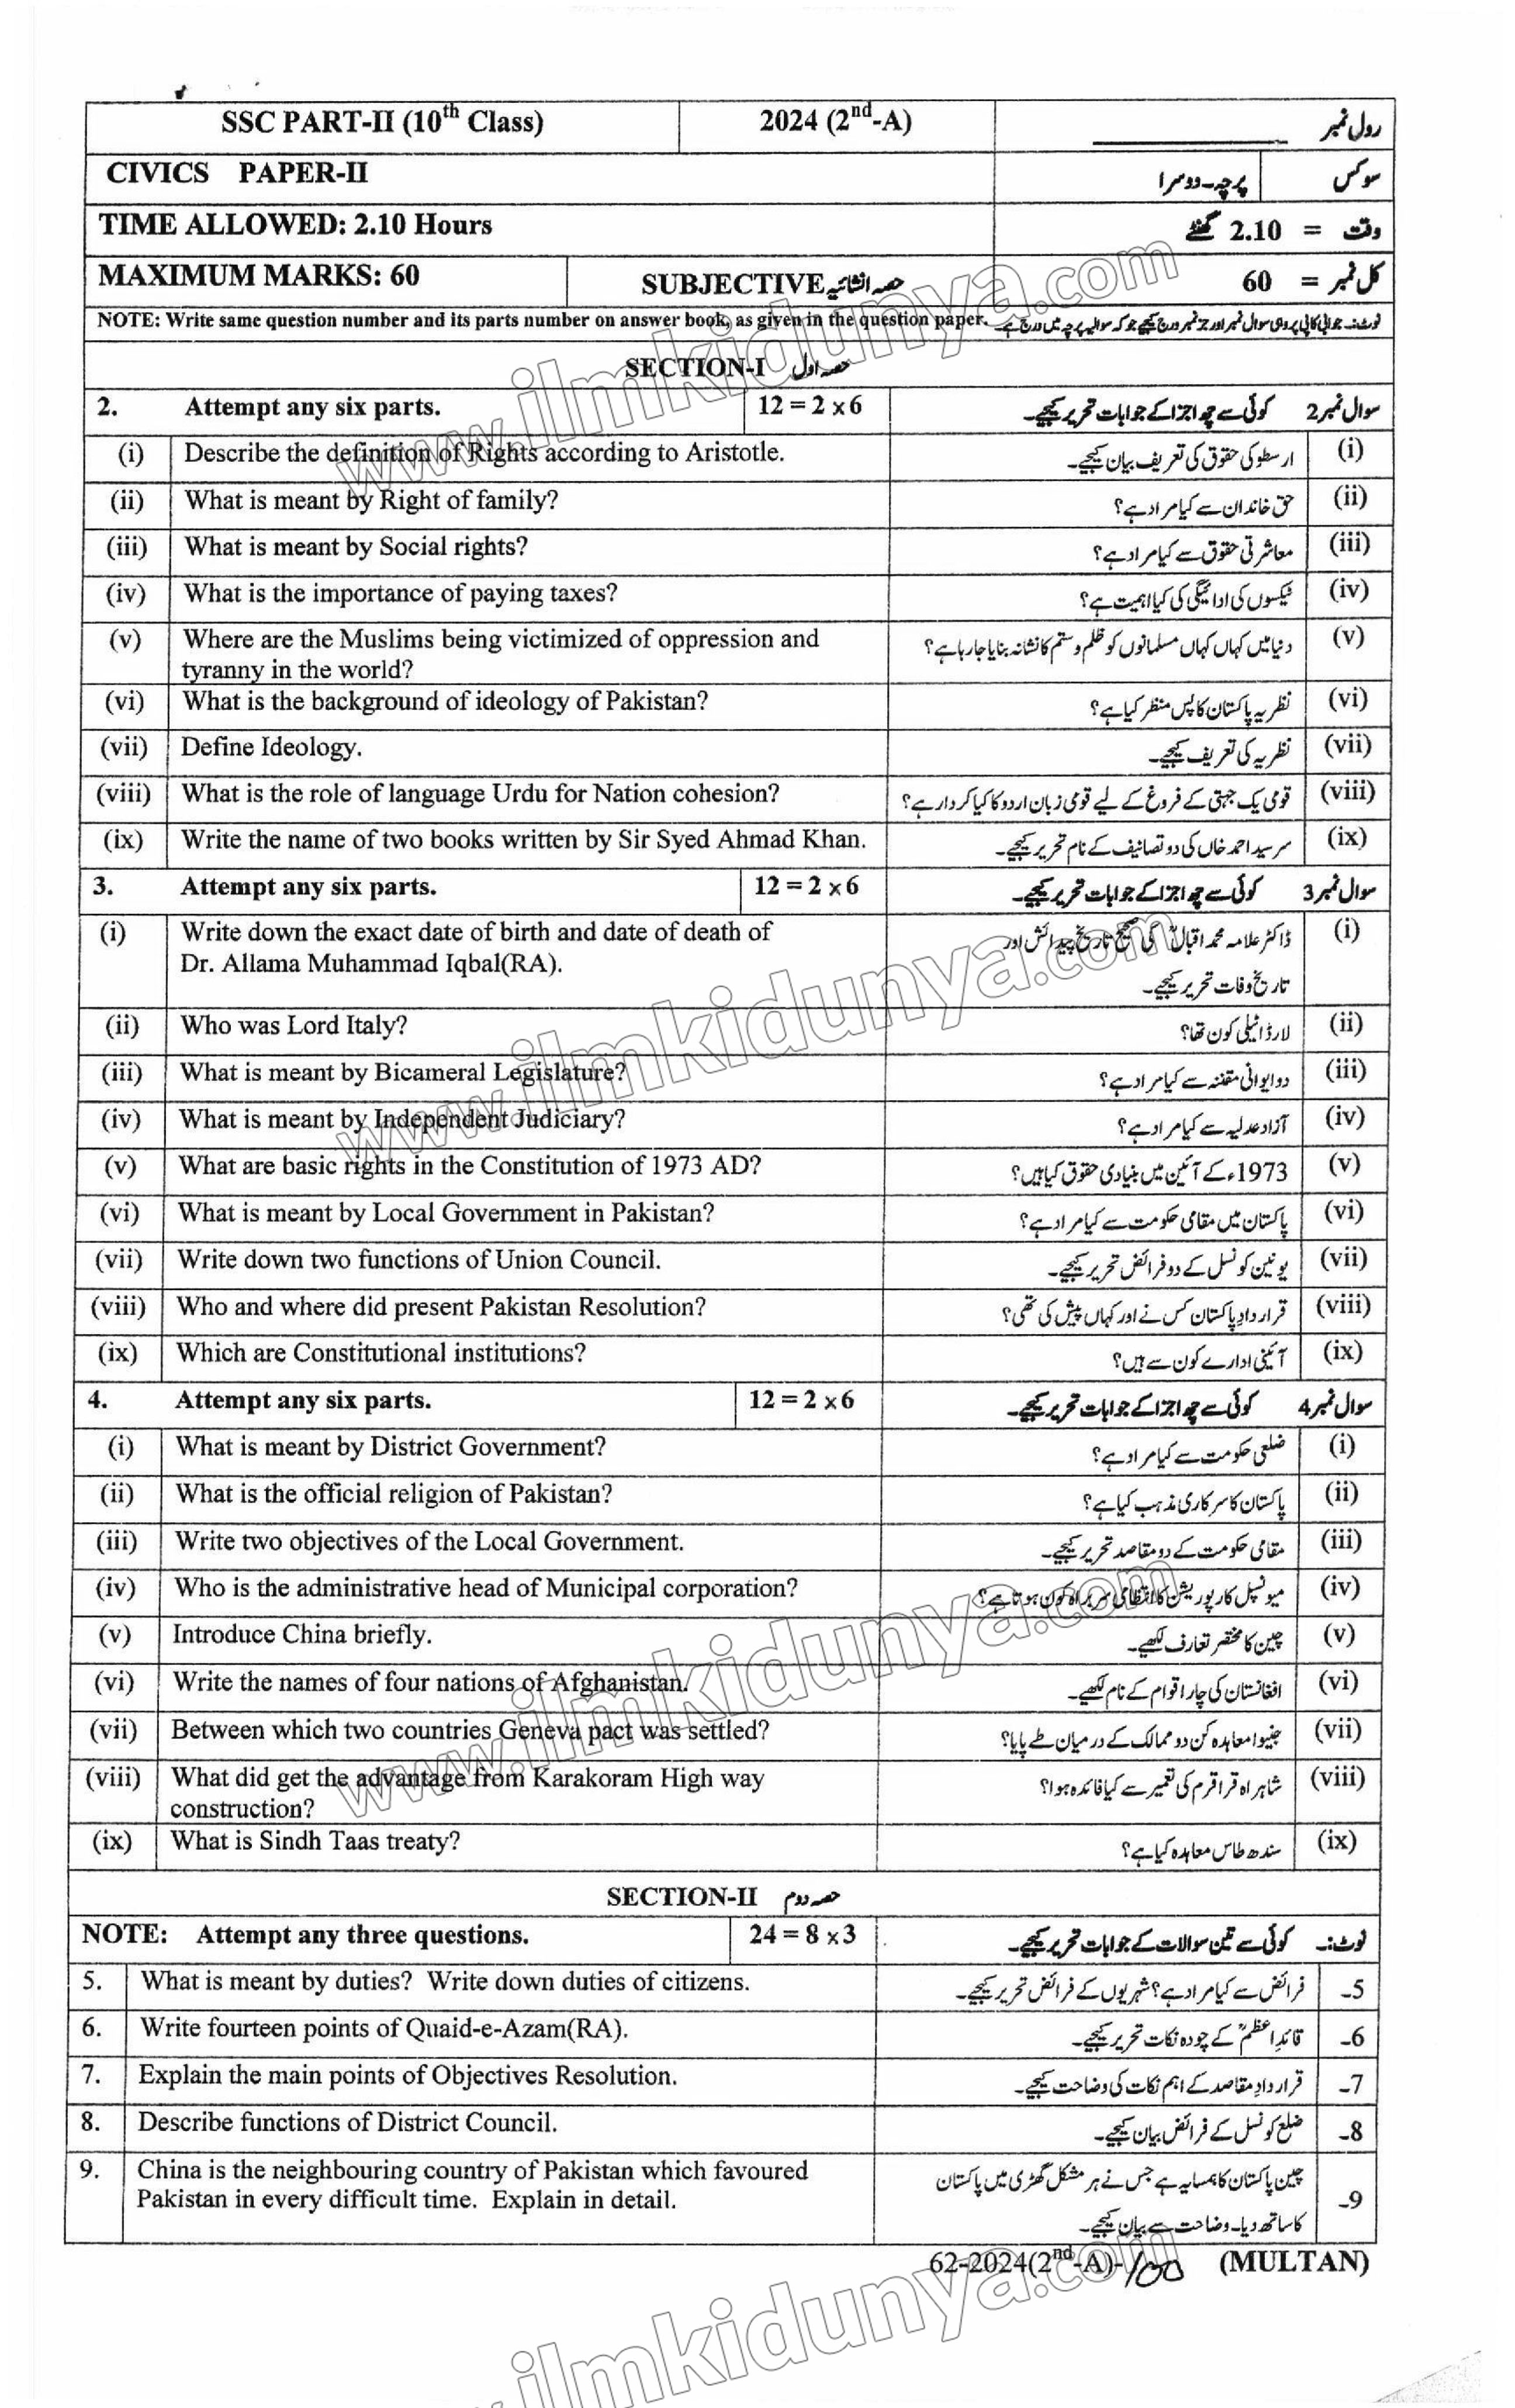 SSC PART-II (10th Class) 2024 (2nd-A) رول نمبر
CIVICS PAPER-II پرچہ-دوسرا سوکس
TIME ALLOWED: 2.10 Hours وقت = 2.10 گھنٹے
MAXIMUM MARKS: 60 SUBJECTIVE حصہ انشائیہ کل نمبر = 60
NOTE: Write same question number and its parts number on answer book, as given in the question paper. نوٹ:۔ جوابی کاپی پر وہی سوال نمبر اور جز نمبر درج کیجیے جو کہ سوالیہ پرچہ میں درج ہے۔
SECTION-I حصہ اول
2. Attempt any six parts. 12 = 2 x 6 سوال نمبر 2 کوئی سے چھ اجزا کے جوابات تحریر کیجیے۔
(i) Describe the definition of Rights according to Aristotle. ارسطو کی حقوق کی تعریف بیان کیجیے۔ (i)
(ii) What is meant by Right of family? حق خاندان سے کیا مراد ہے؟ (ii)
(iii) What is meant by Social rights? معاشرتی حقوق سے کیا مراد ہے؟ (iii)
(iv) What is the importance of paying taxes? ٹیکسوں کی ادائیگی کی کیا اہمیت ہے؟ (iv)
(v) Where are the Muslims being victimized of oppression and دنیا میں کہاں کہاں مسلمانوں کو ظلم و ستم کا نشانہ بنایا جا رہا ہے؟ (v)
tyranny in the world?
(vi) What is the background of ideology of Pakistan? نظریہ پاکستان کا پس منظر کیا ہے؟ (vi)
(vii) Define Ideology. نظریہ کی تعریف کیجیے۔ (vii)
(viii) What is the role of language Urdu for Nation cohesion? قومی یک جہتی کے فروغ کے لیے قومی زبان اردو کا کیا کردار ہے؟ (viii)
(ix) Write the name of two books written by Sir Syed Ahmad Khan. سرسید احمد خاں کی دو تصانیف کے نام تحریر کیجیے۔ (ix)
3. Attempt any six parts. 12 = 2 x 6 سوال نمبر 3 کوئی سے چھ اجزا کے جوابات تحریر کیجیے۔
(i) Write down the exact date of birth and date of death of ڈاکٹر علامہ محمد اقبالؒ کی صحیح تاریخ پیدائش اور (i)
Dr. Allama Muhammad Iqbal(RA). تاریخ وفات تحریر کیجیے۔
(ii) Who was Lord Italy? لارڈ اٹیلی کون تھا؟ (ii)
(iii) What is meant by Bicameral Legislature? دو ایوانی مقننہ سے کیا مراد ہے؟ (iii)
(iv) What is meant by Independent Judiciary? آزاد عدلیہ سے کیا مراد ہے؟ (iv)
(v) What are basic rights in the Constitution of 1973 AD? 1973ء کے آئین میں بنیادی حقوق کیا ہیں؟ (v)
(vi) What is meant by Local Government in Pakistan? پاکستان میں مقامی حکومت سے کیا مراد ہے؟ (vi)
(vii) Write down two functions of Union Council. یونین کونسل کے دو فرائض تحریر کیجیے۔ (vii)
(viii) Who and where did present Pakistan Resolution? قرارداد پاکستان کس نے اور کہاں پیش کی تھی؟ (viii)
(ix) Which are Constitutional institutions? آئینی ادارے کون سے ہیں؟ (ix)
4. Attempt any six parts. 12 = 2 x 6 سوال نمبر 4 کوئی سے چھ اجزا کے جوابات تحریر کیجیے۔
(i) What is meant by District Government? ضلعی حکومت سے کیا مراد ہے؟ (i)
(ii) What is the official religion of Pakistan? پاکستان کا سرکاری مذہب کیا ہے؟ (ii)
(iii) Write two objectives of the Local Government. مقامی حکومت کے دو مقاصد تحریر کیجیے۔ (iii)
(iv) Who is the administrative head of Municipal corporation? میونسپل کارپوریشن کا انتظامی سربراہ کون ہوتا ہے؟ (iv)
(v) Introduce China briefly. چین کا مختصر تعارف لکھیے۔ (v)
(vi) Write the names of four nations of Afghanistan. افغانستان کی چار اقوام کے نام لکھیے۔ (vi)
(vii) Between which two countries Geneva pact was settled? جنیوا معاہدہ کن دو ممالک کے درمیان طے پایا؟ (vii)
(viii) What did get the advantage from Karakoram High way شاہراہ قراقرم کی تعمیر سے کیا فائدہ ہوا؟ (viii)
construction?
(ix) What is Sindh Taas treaty? سندھ طاس معاہدہ کیا ہے؟ (ix)
SECTION-II حصہ دوم
NOTE: Attempt any three questions. 24 = 8 x 3 نوٹ:۔ کوئی سے تین سوالات کے جوابات تحریر کیجیے۔
5. What is meant by duties? Write down duties of citizens. فرائض سے کیا مراد ہے؟ شہریوں کے فرائض تحریر کیجیے۔ -5
6. Write fourteen points of Quaid-e-Azam(RA). قائداعظمؒ کے چودہ نکات تحریر کیجیے۔ -6
7. Explain the main points of Objectives Resolution. قرارداد مقاصد کے اہم نکات کی وضاحت کیجیے۔ -7
8. Describe functions of District Council. ضلع کونسل کے فرائض بیان کیجیے۔ -8
9. China is the neighbouring country of Pakistan which favoured چین پاکستان کا ہمسایہ ہے جس نے ہر مشکل گھڑی میں پاکستان -9
Pakistan in every difficult time. Explain in detail. کا ساتھ دیا۔ وضاحت سے بیان کیجیے۔
62-2024(2nd-A)-100 (MULTAN)
www.ilmkidunya.com
www.ilmkidunya.com
www.ilmkidunya.com
www.ilmkidunya.com